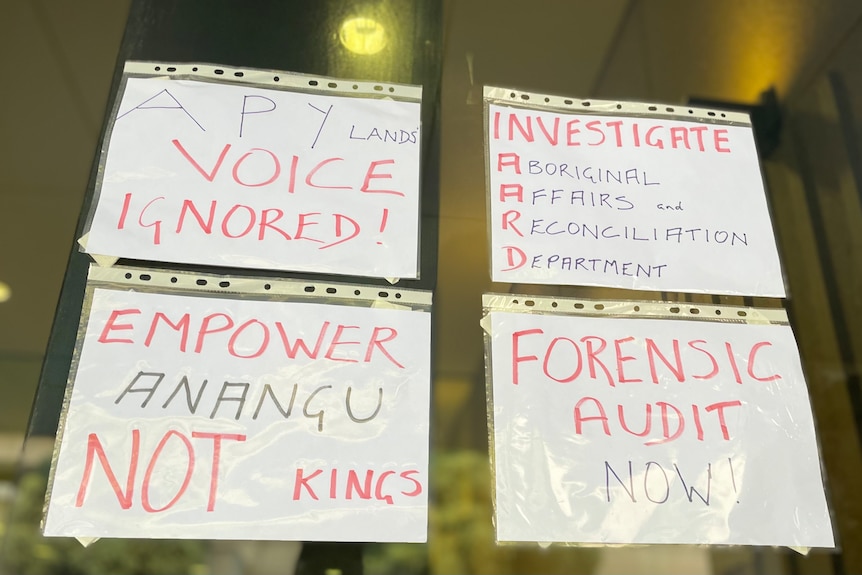 APY LANDS'
VOICE
IGNORED!
INVESTIGATE
ABORIGINAL
AFFAIRS and
RECONCILIATION
DEPARTMENT
EMPOWER
ANANGU
NOT KINGS
FORENSIC
AUDIT
NOW!